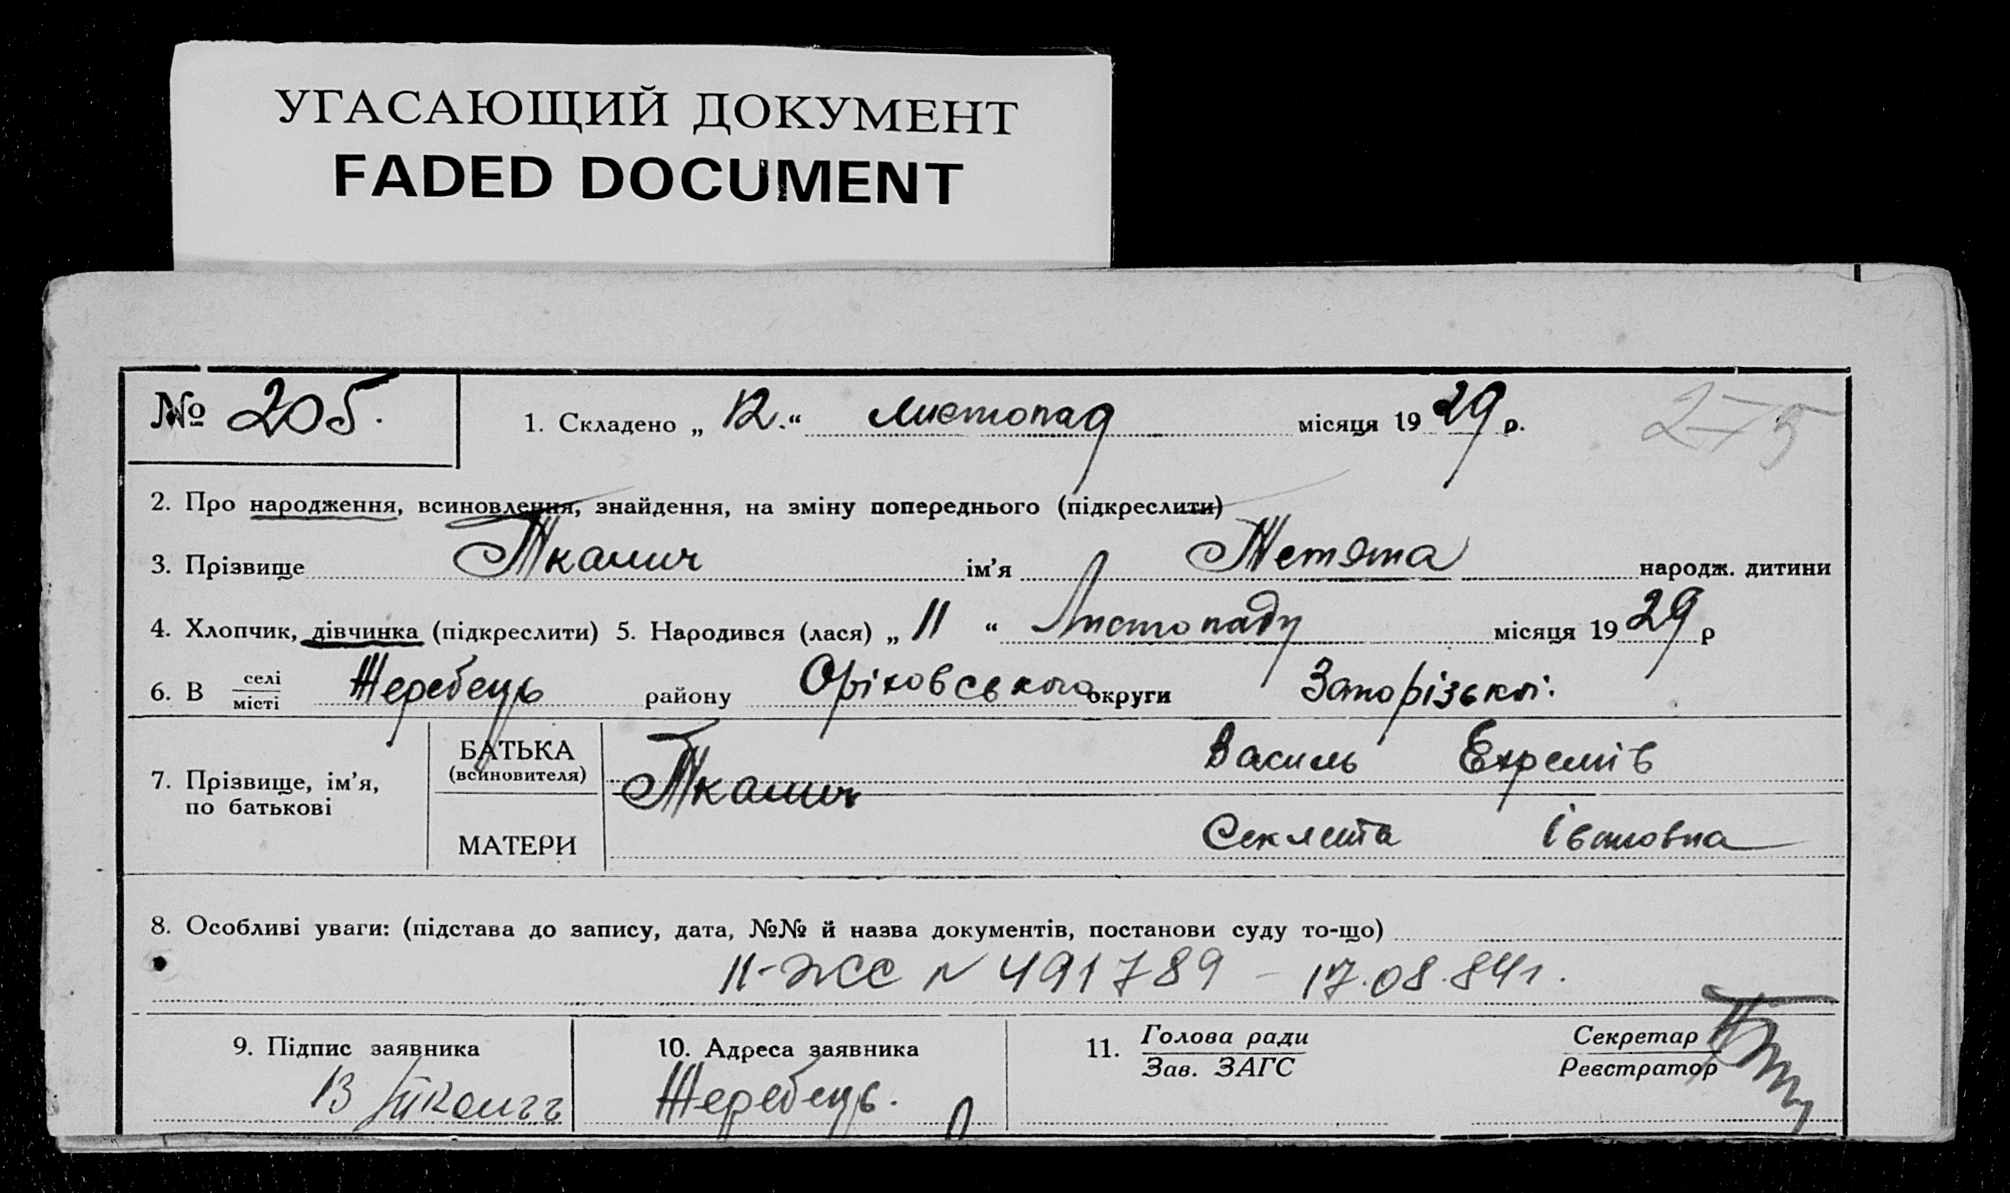 УГАСАЮЩИЙ ДОКУМЕНТ
FADED DOCUMENT
№ 205.
1. Складено „ 12. “ листопад місяця 1929 р.
275
2. Про народження, всиновлення, знайдення, на зміну попереднього (підкреслити)
3. Прізвище Ткалич ім’я Тетяна народж. дитини
4. Хлопчик, дівчинка (підкреслити) 5. Народився (лася) „ 11 “ Листопаду місяця 1929 р
6. В селі місті Жеребець району Оріховського округи Запорізької.
7. Прізвище, ім’я, по батькові
БАТЬКА (всиновителя) Ткалич Василь Ехремів
МАТЕРИ Секлета Івановна
8. Особливі уваги: (підстава до запису, дата, №№ й назва документів, постанови суду то-що)
II-ЖС N 491789 – 17.08.84г.
9. Підпис заявника
10. Адреса заявника
11. Голова ради Зав. ЗАГС
Секретар Реєстратор
В Ткалич
Жеребець.